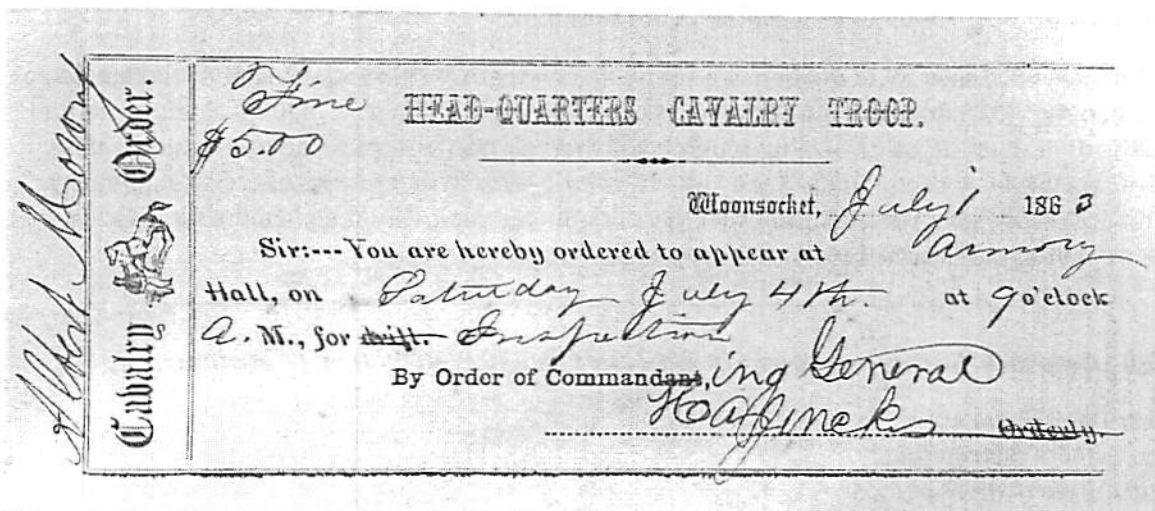 Albert Mowry
Cavalry Order.
Fine
$5.00
HEAD-QUARTERS CAVALRY TROOP.
Woonsocket, July 1 1863
Sir:--- You are hereby ordered to appear at Armory
Hall, on Saturday July 4th. at 9 o'clock
A. M., for drill. Inspection
By Order of Commandant, ing General
Jencks Orderly.